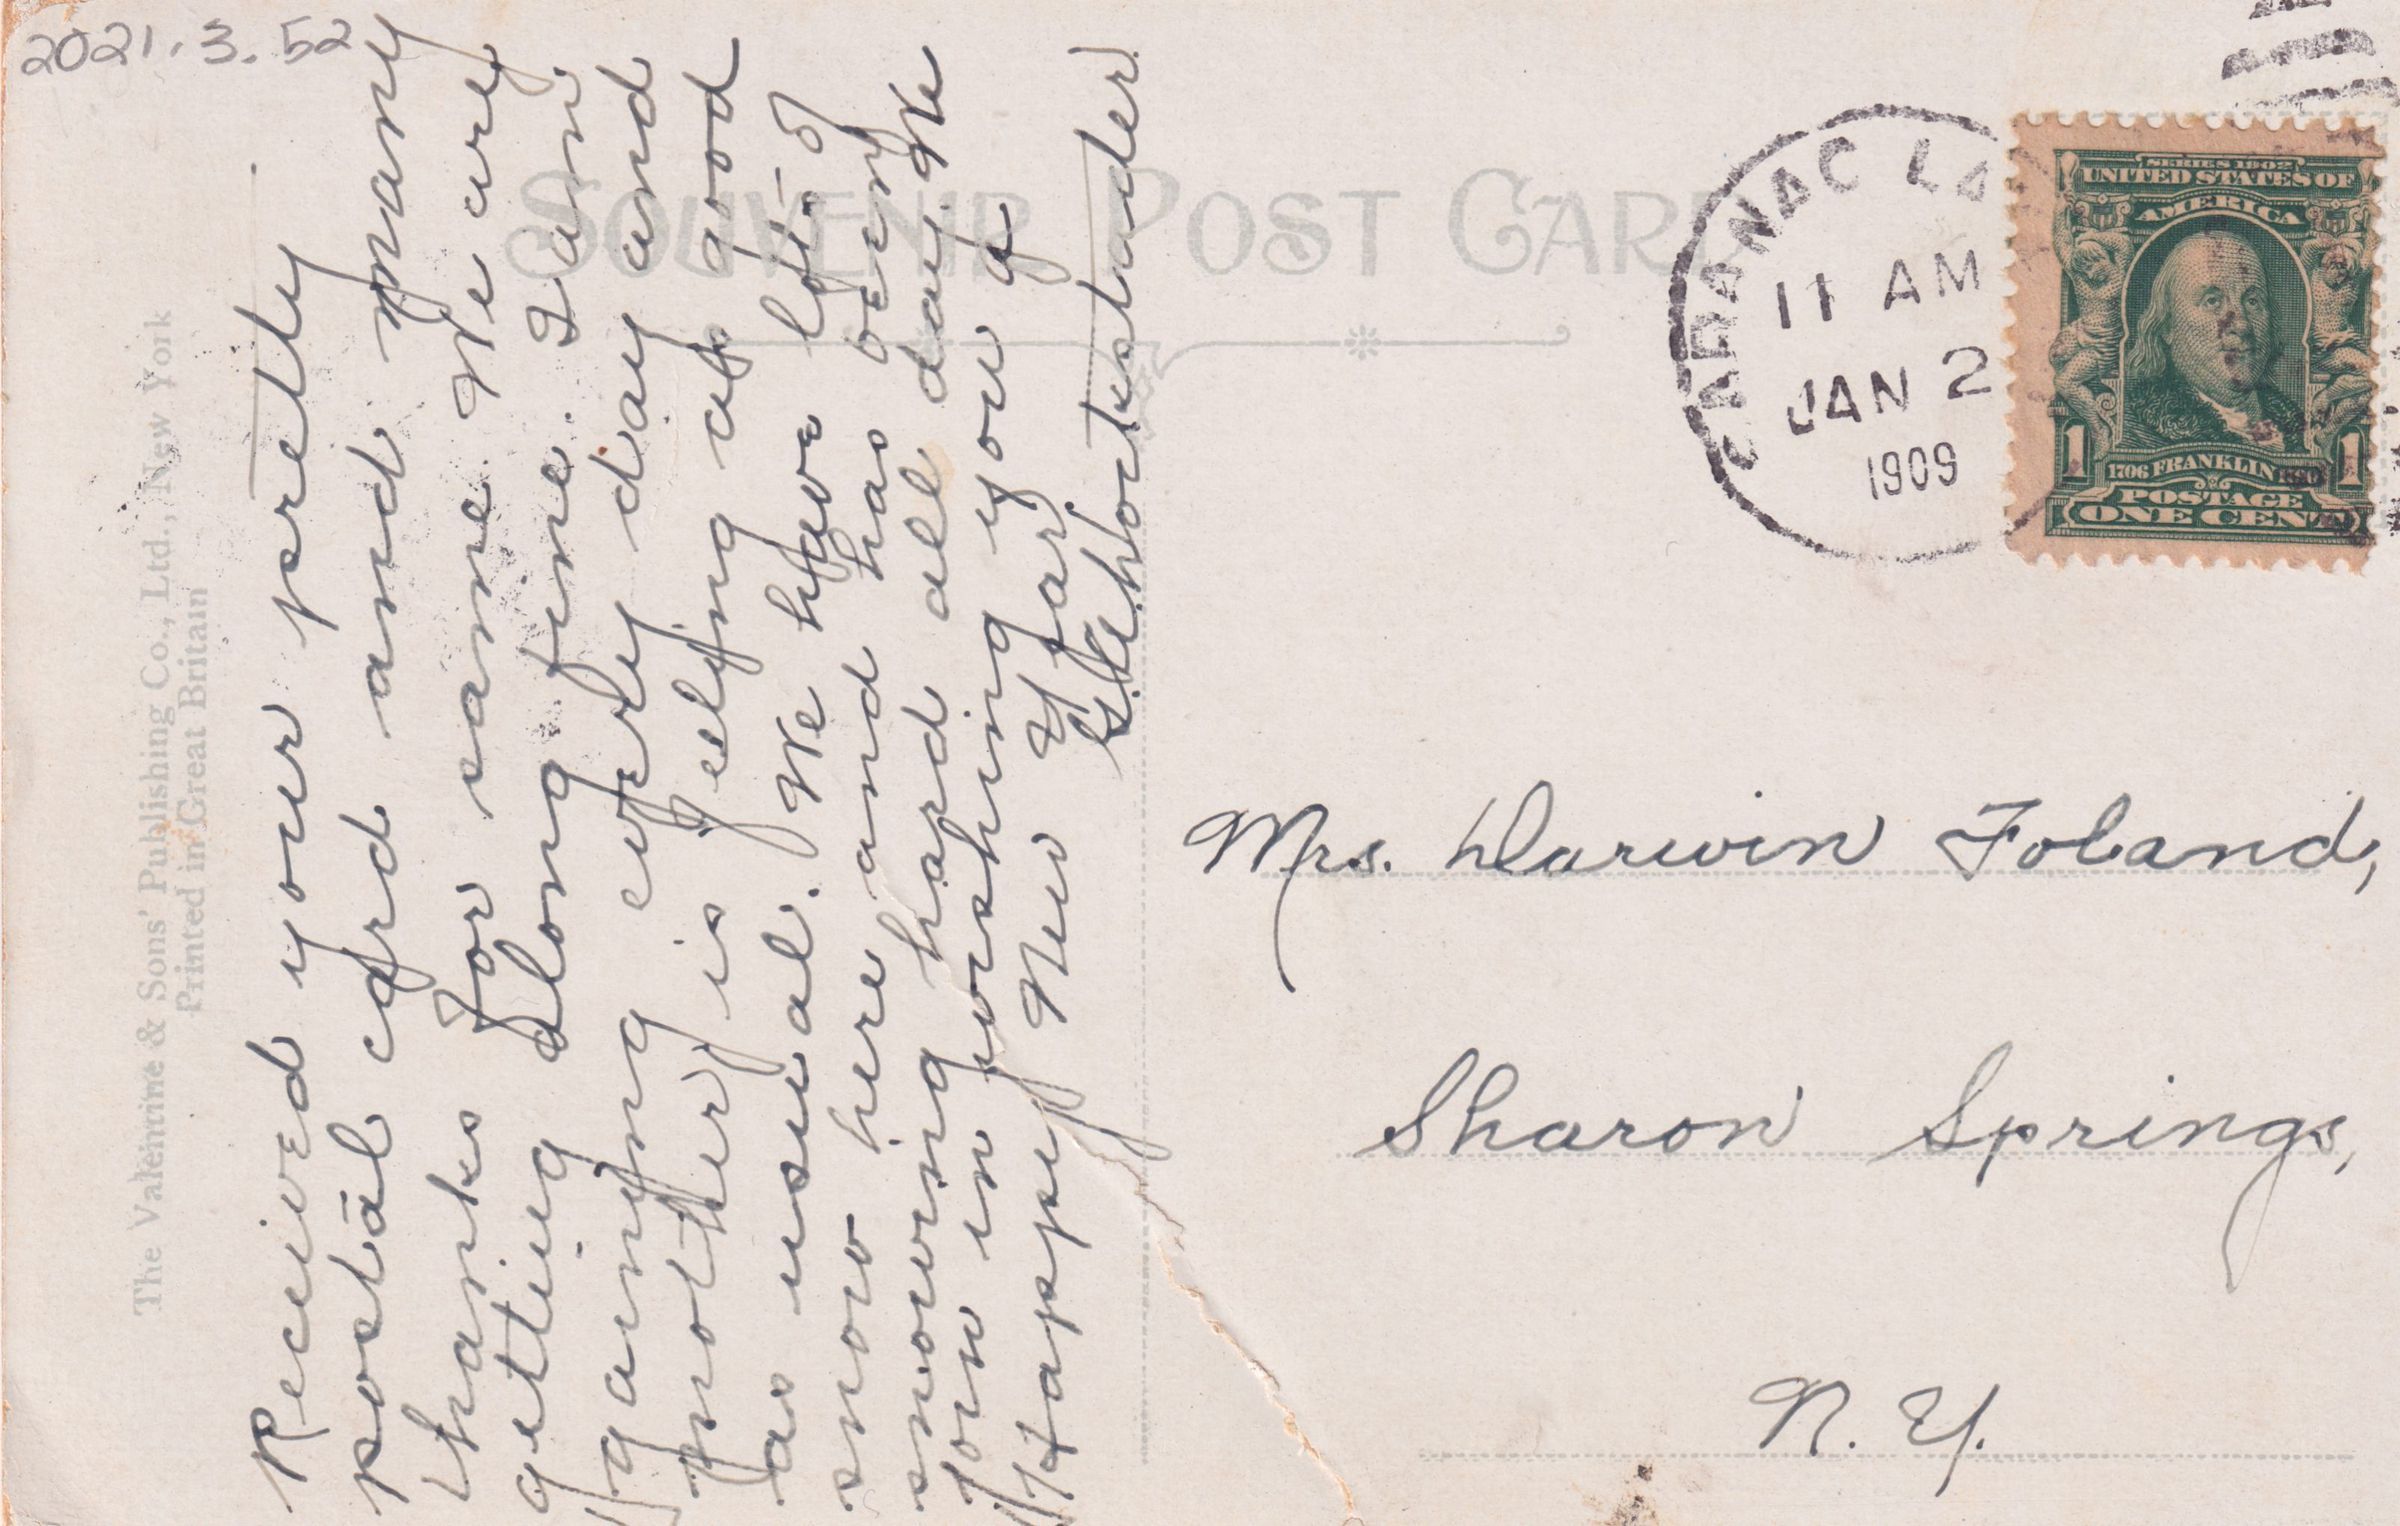 2021.3.52
The Valentine & Sons' Publishing Co., Ltd., New York
Printed in Great Britain
SOUVENIR POST CARD
Received your pretty
postal card and many
thanks for same. We are
getting along fine. I am
gaining every day and
mother is feeling as good
as usual. We have lots of
snow here and has been
snowing hard all day. We
join in wishing you a
Happy New Year
SARANAC LA
11 AM
JAN 2
1909
SERIES 1902
UNITED STATES OF
AMERICA
1706 FRANKLIN 1790
1 1
POSTAGE
ONE CENT
Mrs. Darwin Foland,
Sharon Springs,
N. Y.